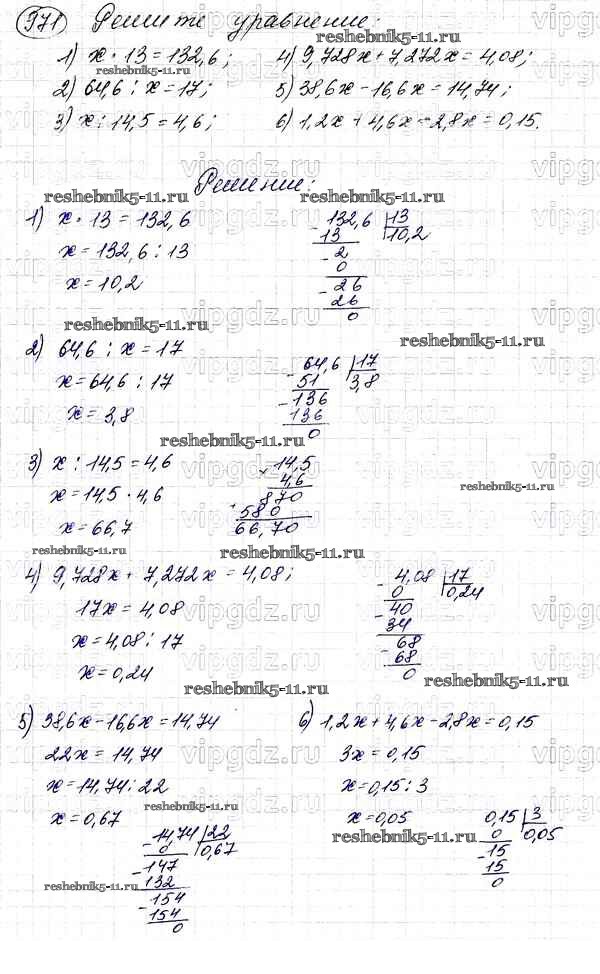 971 Решите уравнение:
1) x · 13 = 132,6; 4) 9,728x + 7,272x = 4,08;
2) 64,6 : x = 17; 5) 38,6x - 16,6x = 14,74;
3) x : 14,5 = 4,6; 6) 1,2x + 4,6x - 2,8x = 0,15.
Решение:
1) x · 13 = 132,6
x = 132,6 : 13
x = 10,2
- 132,6 | 13
13 | 10,2
- 2
0
- 26
26
0
2) 64,6 : x = 17
x = 64,6 : 17
x = 3,8
- 64,6 | 17
51 | 3,8
- 136
136
0
3) x : 14,5 = 4,6
x = 14,5 · 4,6
x = 66,7
× 14,5
4,6
870
+ 580
66,70
4) 9,728x + 7,272x = 4,08;
17x = 4,08
x = 4,08 : 17
x = 0,24
- 4,08 | 17
0 | 0,24
- 40
34
- 68
68
0
5) 38,6x - 16,6x = 14,74
22x = 14,74
x = 14,74 : 22
x = 0,67
- 14,74 | 22
0 | 0,67
- 147
132
- 154
154
0
6) 1,2x + 4,6x - 2,8x = 0,15
3x = 0,15
x = 0,15 : 3
x = 0,05
- 0,15 | 3
0 | 0,05
- 15
15
0
reshebnik5-11.ru
vipgdz.ru